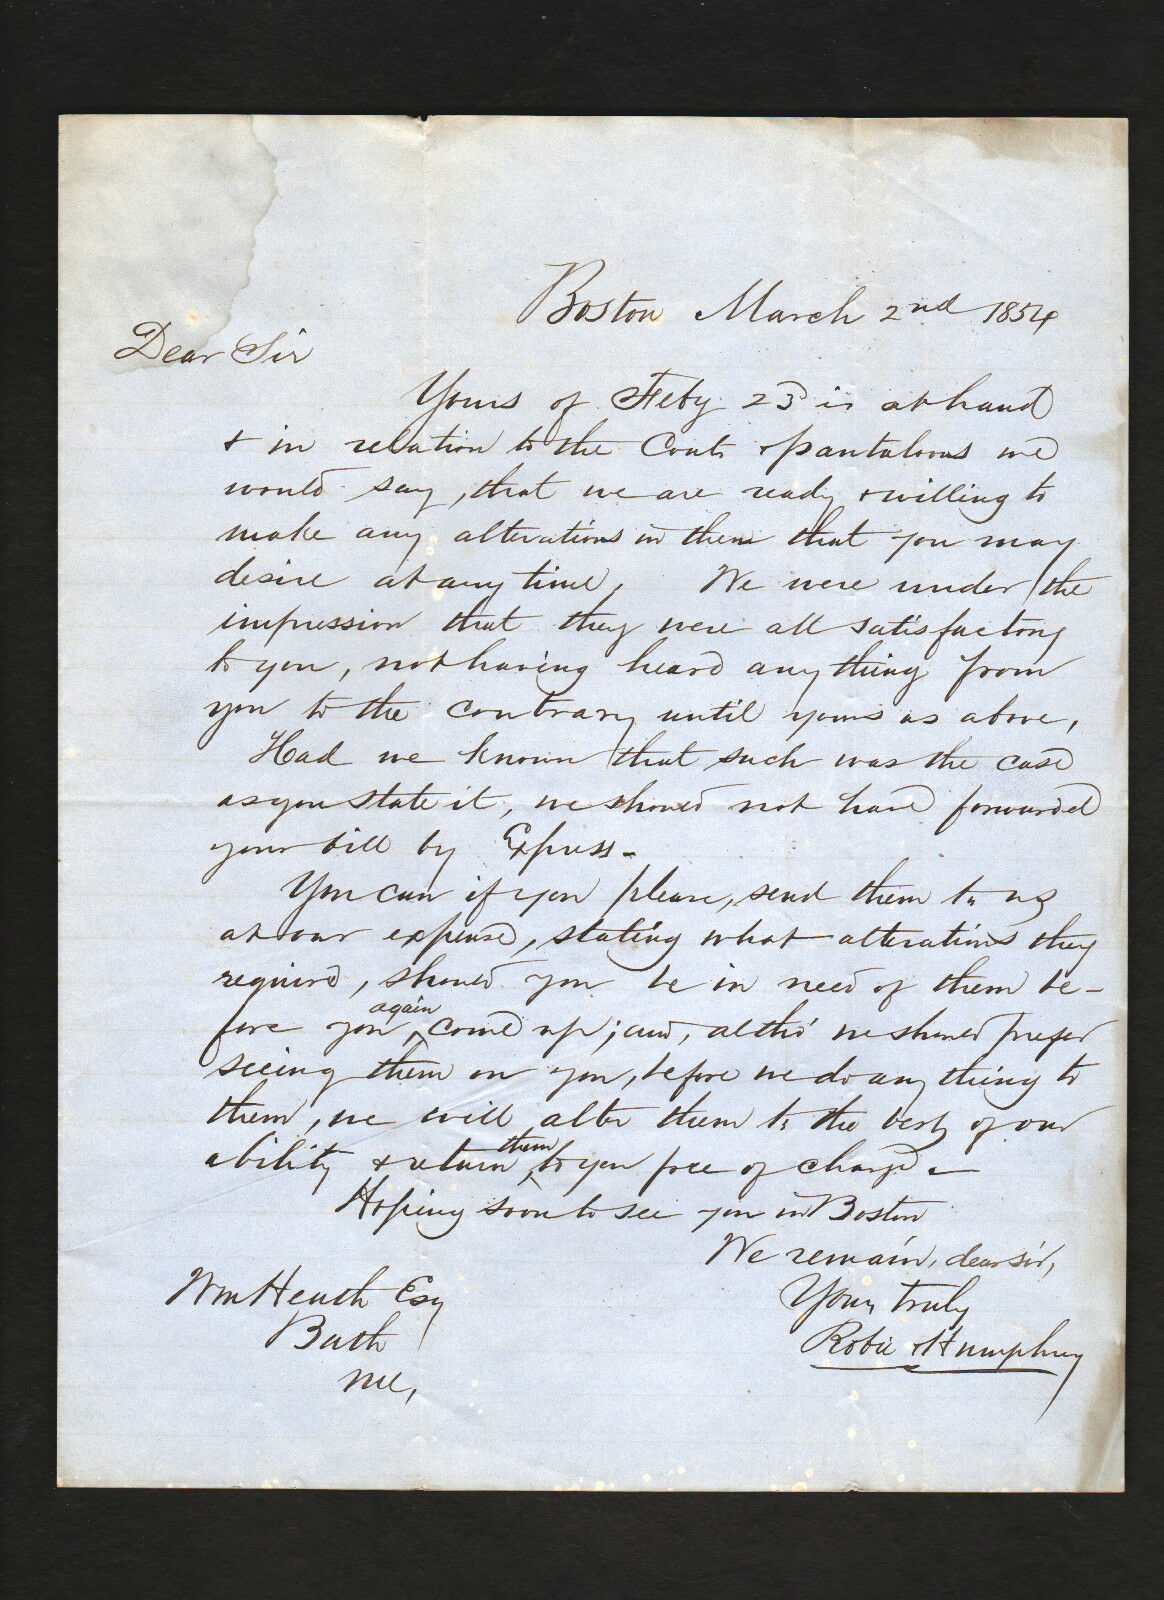 Boston March 2nd 1854
Dear Sir
Yours of Feby 23 is at hand
& in relation to the Coats & pantaloons we
would say, that we are ready & willing to
make any alterations in them that you may
desire at any time, We were under the
impression that they were all satisfactory
to you, not having heard any thing from
you to the contrary until yours as above,
Had we known that such was the case
as you state it, we should not have forwarded
your bill by Express -
You can if you please, send them to us
at our expense, stating what alterations they
require, should you be in need of them be-
fore you again come up; and, altho' we should prefer
seeing them on you, before we do any thing to
them, we will alter them to the best of our
ability & return them to you free of charge -
Hoping soon to see you in Boston
We remain, dear sir,
Yours truly
Robie & Humphrey
Wm Heath Esq
Bath
Me,